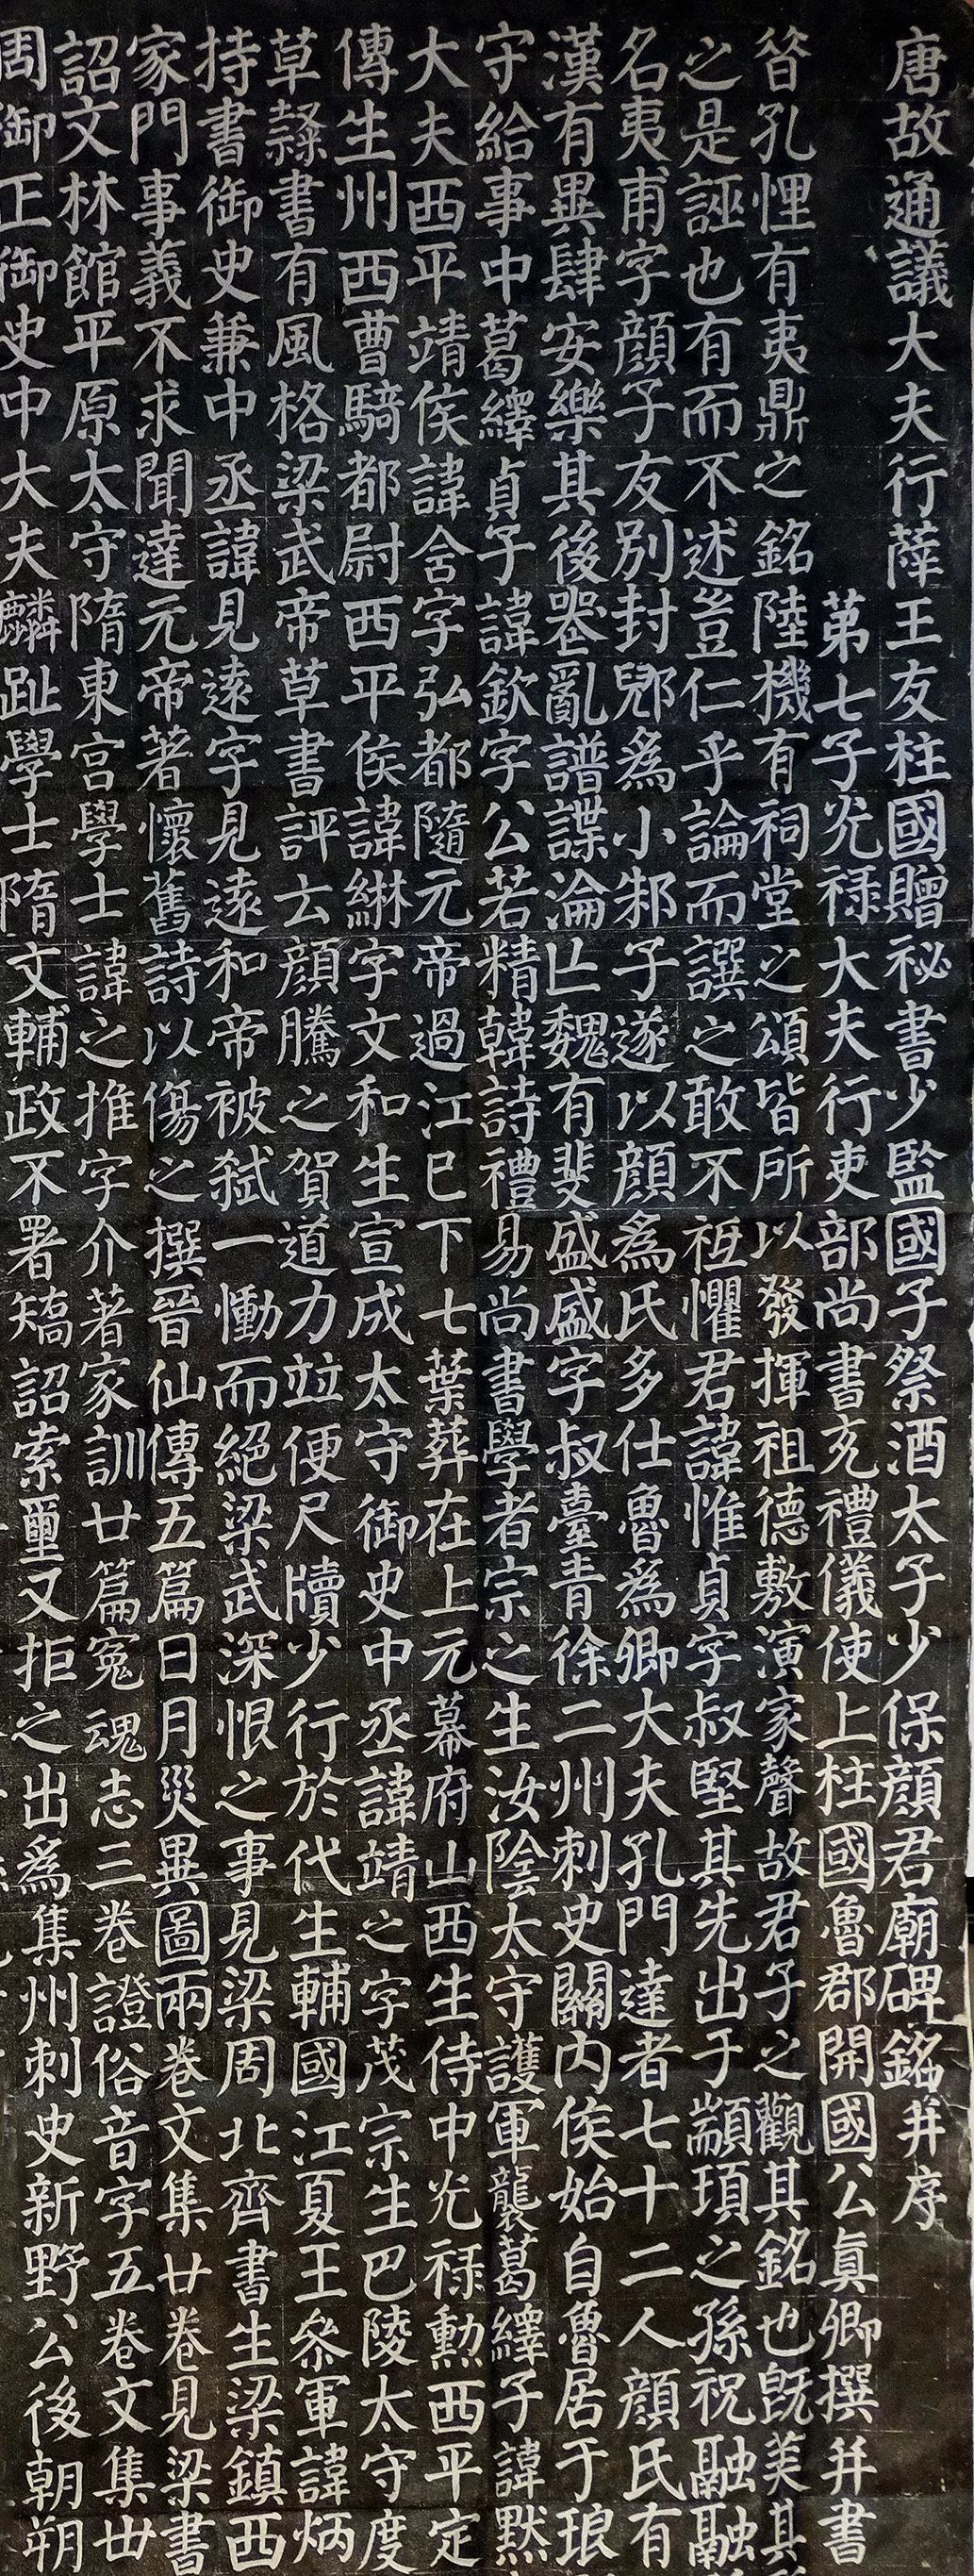 唐故通議大夫行薛王友柱國贈祕書少監國子祭酒太子少保顏君廟碑銘并序
第七子光祿大夫行吏部尚書充禮儀使上柱國魯郡開國公真卿撰并書
昔孔悝有夷鼎之銘陸機有祠堂之頌皆所以發揮祖德敷演家聲故君子之觀其銘也旣美其
之是誣也有而不述豈仁乎論而譔之敢不祗懼君諱惟貞字叔堅其先出于顓頊之孫祝融融
名夷甫字顏子友別封郳為小邾子遂以顏為氏多仕魯為卿大夫孔門達者七十二人顏氏有
漢有異肆安樂其後喪亂譜諜淪亡魏有斐盛盛字叔臺青徐二州刺史關內侯始自魯居于琅
守給事中葛繹貞子諱欽字公若精韓詩禮易尚書學者宗之生汝陰太守護軍襲葛繹子諱默
大夫西平靖侯諱含字弘都隨元帝過江已下七葉葬在上元幕府山西生侍中光祿勳西平定
傳生州西曹騎都尉西平侯諱綝字文和生宣成太守御史中丞諱靖之字茂宗生巴陵太守度
草隸書有風格梁武帝草書評云顏騰之賀道力竝便尺牘少行於代生輔國江夏王參軍諱炳
持書御史兼中丞諱見遠字見遠和帝被弒一慟而絕梁武深恨之事見梁周北齊書生梁鎮西
家門事義不求聞達元帝著懷舊詩以傷之撰晉仙傳五篇日月災異圖兩卷文集廿卷見梁書
詔文林館平原太守隋東宮學士諱之推字介著家訓廿篇冤魂志三卷證俗音字五卷文集卅
周御正御史中大夫麟趾學士隋文輔政不署矯詔索璽又拒之出為集州刺史新野公後朝朔